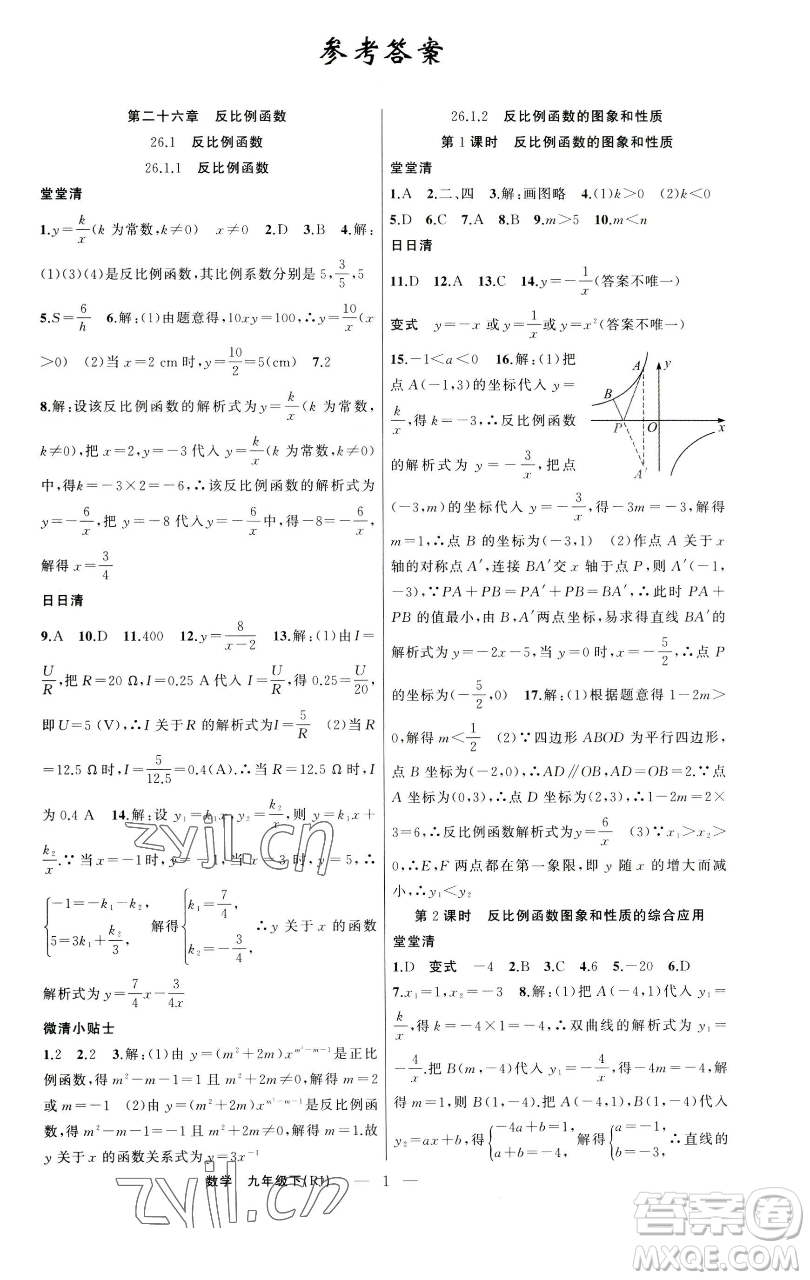 参考答案
第二十六章 反比例函数
26.1 反比例函数
26.1.1 反比例函数
堂堂清
1.y=k/x(k 为常数,k≠0) x≠0 2.D 3.B 4.解:
(1)(3)(4)是反比例函数,其比例系数分别是 5,3/5,5
5.S=6/h 6.解:(1)由题意得,10xy=100,∴y=10/x(x
>0) (2)当 x=2 cm 时,y=10/2=5(cm) 7.2
8.解:设该反比例函数的解析式为 y=k/x(k 为常数,
k≠0),把 x=2,y=-3 代入 y=k/x(k 为常数,k≠0)
中,得 k=-3×2=-6,∴该反比例函数的解析式为
y=-6/x,把 y=-8 代入 y=-6/x中,得-8=-6/x,
解得 x=3/4
日日清
9.A 10.D 11.400 12.y=8/(x-2) 13.解:(1)由 I=
U/R,把 R=20 Ω,I=0.25 A代入,得 0.25=U/20,
即 U=5 (V),∴I 关于 R 的解析式为 I=5/R (2)当 R
=12.5 Ω时,I=5/12.5=0.4(A).当 R=12.5 Ω时,I
为 0.4 A 14.解:设 y₁=k₁x,y₂=k₂/x,则 y=k₁x+
k₂/x.∵当 x=-1 时,y=-1,当 x=3 时,y=5,∴
{-1=-k₁-k₂, 5=3k₁+k₂/3, 解得{k₁=7/4, k₂=-3/4, ∴y 关于 x 的函数
解析式为 y=7/4x-3/4x
微清小贴士
1.2 2.2 3.解:(1)由 y=(m²+2m)x^(m²-m-1)是正比
例函数,得 m²-m-1=1 且 m²+2m≠0,解得 m=2
或 m=-1 (2)由 y=(m²+2m)x^(m²-m-1)是反比例函
数,得 m²-m-1=-1 且 m²+2m≠0,解得 m=1.故
y 关于 x 的函数关系式为 y=3x⁻¹
26.1.2 反比例函数的图象和性质
第 1 课时 反比例函数的图象和性质
堂堂清
1.A 2.二、四 3.解:画图略 4.(1)k>0 (2)k<0
5.D 6.C 7.A 8.B 9.m>5 10.m<n
日日清
11.D 12.A 13.C 14.y=-1/x(答案不唯一)
变式 y=-x 或 y=1/x或 y=x²(答案不唯一)
15.-1<a<0 16.解:(1)把
点 A(-1,3)的坐标代入 y=
k/x,得 k=-3,∴反比例函数
的解析式为 y=-3/x,把点
A y B P O x A′
(-3,m)的坐标代入 y=-3/x,得-3m=-3,解得
m=1,∴点 B 的坐标为(-3,1) (2)作点 A 关于 x
轴的对称点 A′,连接 BA′交 x 轴于点 P,则 A′(-1,
-3),∵PA+PB=PA′+PB=BA′,∴此时 PA+
PB 的值最小,由 B,A′两点坐标,易求得直线 BA′的
解析式为 y=-2x-5,当 y=0 时,x=-5/2,∴点 P
的坐标为(-5/2,0) 17.解:(1)根据题意得 1-2m>
0,解得 m<1/2 (2)∵四边形 ABOD 为平行四边形,
∴AD∥OB,AD=OB=2.∵点
A 的坐标为(0,3),∴点 D 的坐标为(2,3),∴1-2m=2×
3=6,∴反比例函数解析式为 y=6/x (3)∵x₁>x₂>
0,∴E,F 两点都在第一象限,即 y 随 x 的增大而减
小,∴y₁<y₂
第 2 课时 反比例函数图象和性质的综合应用
堂堂清
1.D 变式 -4 2.B 3.C 4.6 5.-20 6.D
7.x₁=1,x₂=-3 8.解:(1)把 A(-4,1)代入 y₁=
k/x,得 k=-4×1=-4,∴双曲线的解析式为 y₁=
-4/x.把 B(m,-4)代入 y₁=-4/x,得-4m=-4,解
得 m=1.把 A(-4,1),B(1,-4)代入
y₂=ax+b,得{-4a+b=1, a+b=-4, 解得{a=-1, b=-3, ∴直线的
数学 九年级下(RJ) — 1 —
zyjl.cn
zyjl.cn
答案卷
MXQE.COM